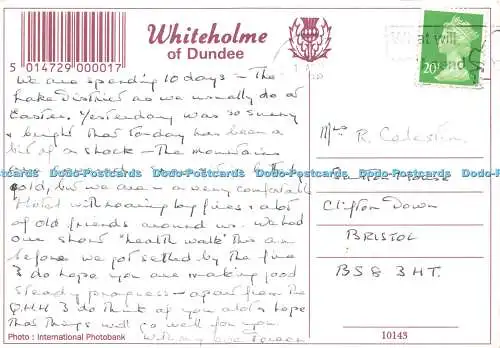 Whiteholme
of Dundee
5 014729 000017
What will
20
We are spending 10 days – The
Lake District as we usually do at
Easter. Yesterday was so sunny
& bright that today has been a
bit of a shock – The mountains
cold, but we are in a very comfortable
Hotel with roaring log fires & a lot
of old friends around us. We had
one short "health walk" this am
before we got settled by the fire
I do hope you are making good
steady progress – apart from the
I do think of you a lot & hope
that things will go well for you
With my love
Photo : International Photobank
Mrs R. Celestin
House
Clifton Down
BRISTOL
BS8 3HT.
10143
Dodo-Postcards Dodo-Postcards Dodo-Postcards Dodo-Postcards Dodo-Postcards